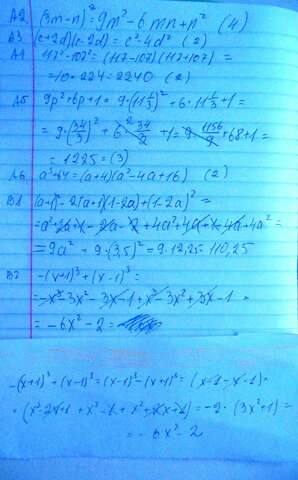 A2 (3m-n)² = 9m² - 6mn + n² (4)
A3 (c+2d)(c-2d) = c² - 4d² (2)
A4 117² - 107² = (117-107)(117+107) =
= 10 · 224 = 2240 (2)
A5 9p² + 6p + 1 = 9 · (11 1/3)² + 6 · 11 1/3 + 1 =
= 9 · (34/3)² + 6 · 34/3 + 1 = 9 · 1156/9 + 68 + 1 =
= 1225 = (3)
A6 a³ + 64 = (a+4)(a² - 4a + 16) (2)
B1 (a-1)² - 2(a+1)(1-2a) + (1-2a)² =
= 9a² = 9 · (3,5)² = 9 · 12,25 = 110,25
B2
-(x+1)³ + (x-1)³ =
= -x³ - 3x² - 3x - 1 + x³ - 3x² + 3x - 1 =
= -6x² - 2 =
-(x+1)³ + (x-1)³ = (x-1)³ - (x+1)³ = (x-1-x-1) ·
= -2 · (3x² + 1) =
= -6x² - 2